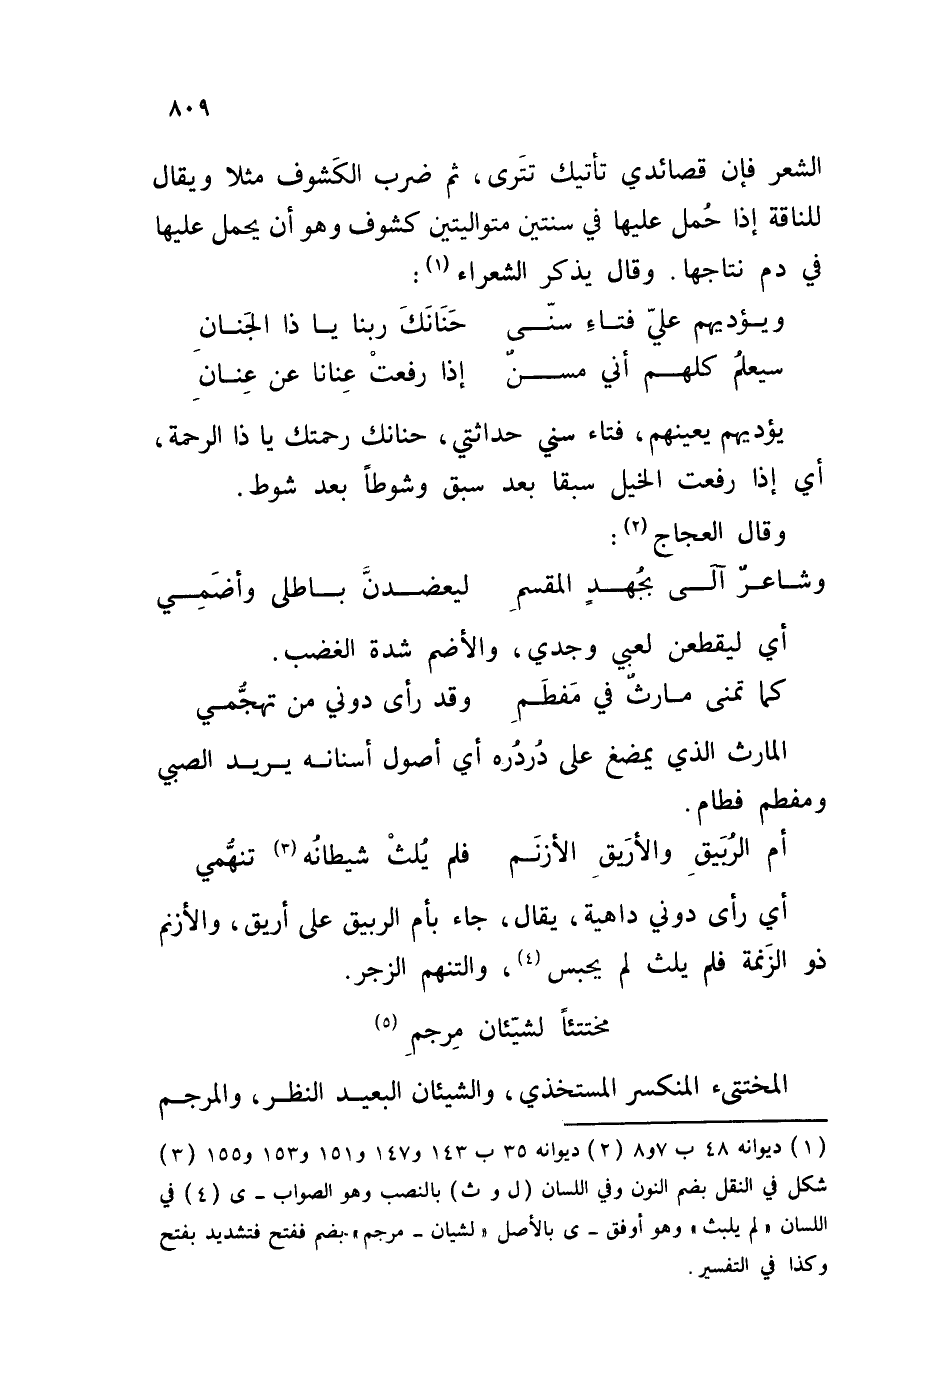 ٨٠٩
الشعر فإن قصائدي تأتيك تتَرى، ثم ضرب الكَشوف مثلا ويقال
للناقة إذا حُمل عليها في سنتين متواليتين كشوف وهو أن يحمل عليها
في دم نتاجها. وقال يذكر الشعراء (١) :
ويـؤديهم عليّ فتـاءِ سنّـــى    حَنَانَكَ ربنا يــا ذا الجَنــانِ
سيعلمُ كلهــم أني مســـنّ    إذا رفعتْ عِنانا عن عِنــانِ
يؤديهم يعينهم، فتاء سني حداثتي، حنانك رحمتك يا ذا الرحمة،
أي إذا رفعت الخيل سبقا بعد سبق وشوطاً بعد شوط.
وقال العجاج (٢) :
وشـاعـرّ آلَـــى بجُهـــدٍ المقسمِ    ليعضـــدنَّ بـــاطلى وأضَمِـــي
أي ليقطعن لعبي وجدي، والأضم شدة الغضب.
كما تمنى مــارثّ في مَفطَــمِ    وقد رأى دوني من تهجُّمــي
المارث الذي يمضغ على دُردُره أي أصول أسنانــه يــريــد الصبي
ومفطم فطام.
أم الرُبَيقِ والأرَيقِ الأزنَــم    فلم يُلثْ شيطانُه (٣) تنهُّمي
أي رأى دوني داهية، يقال، جاء بأم الربيق على أريق، والأزنم
ذو الزَنمة فلم يلث لم يحبس (٤)، والتنهم الزجر.
مختتئاً لشيّئان مِرجمِ (٥)
المختتىء المنكسر المستخذي، والشيئان البعيــد النظــر، والمرجــم
(١) ديوانه ٤٨ ب ٧و٨ (٢) ديوانه ٣٥ ب ١٤٣ و١٤٧ و١٥١ و١٥٣ و١٥٥ (٣)
شكل في النقل بضم النون وفي اللسان (ل و ث) بالنصب وهو الصواب - ى (٤) في
اللسان « لم يلبث » وهو أوفق - ى بالأصل « لشيان - مرجم » بضم ففتح فتشديد بفتح
وكذا في التفسير.